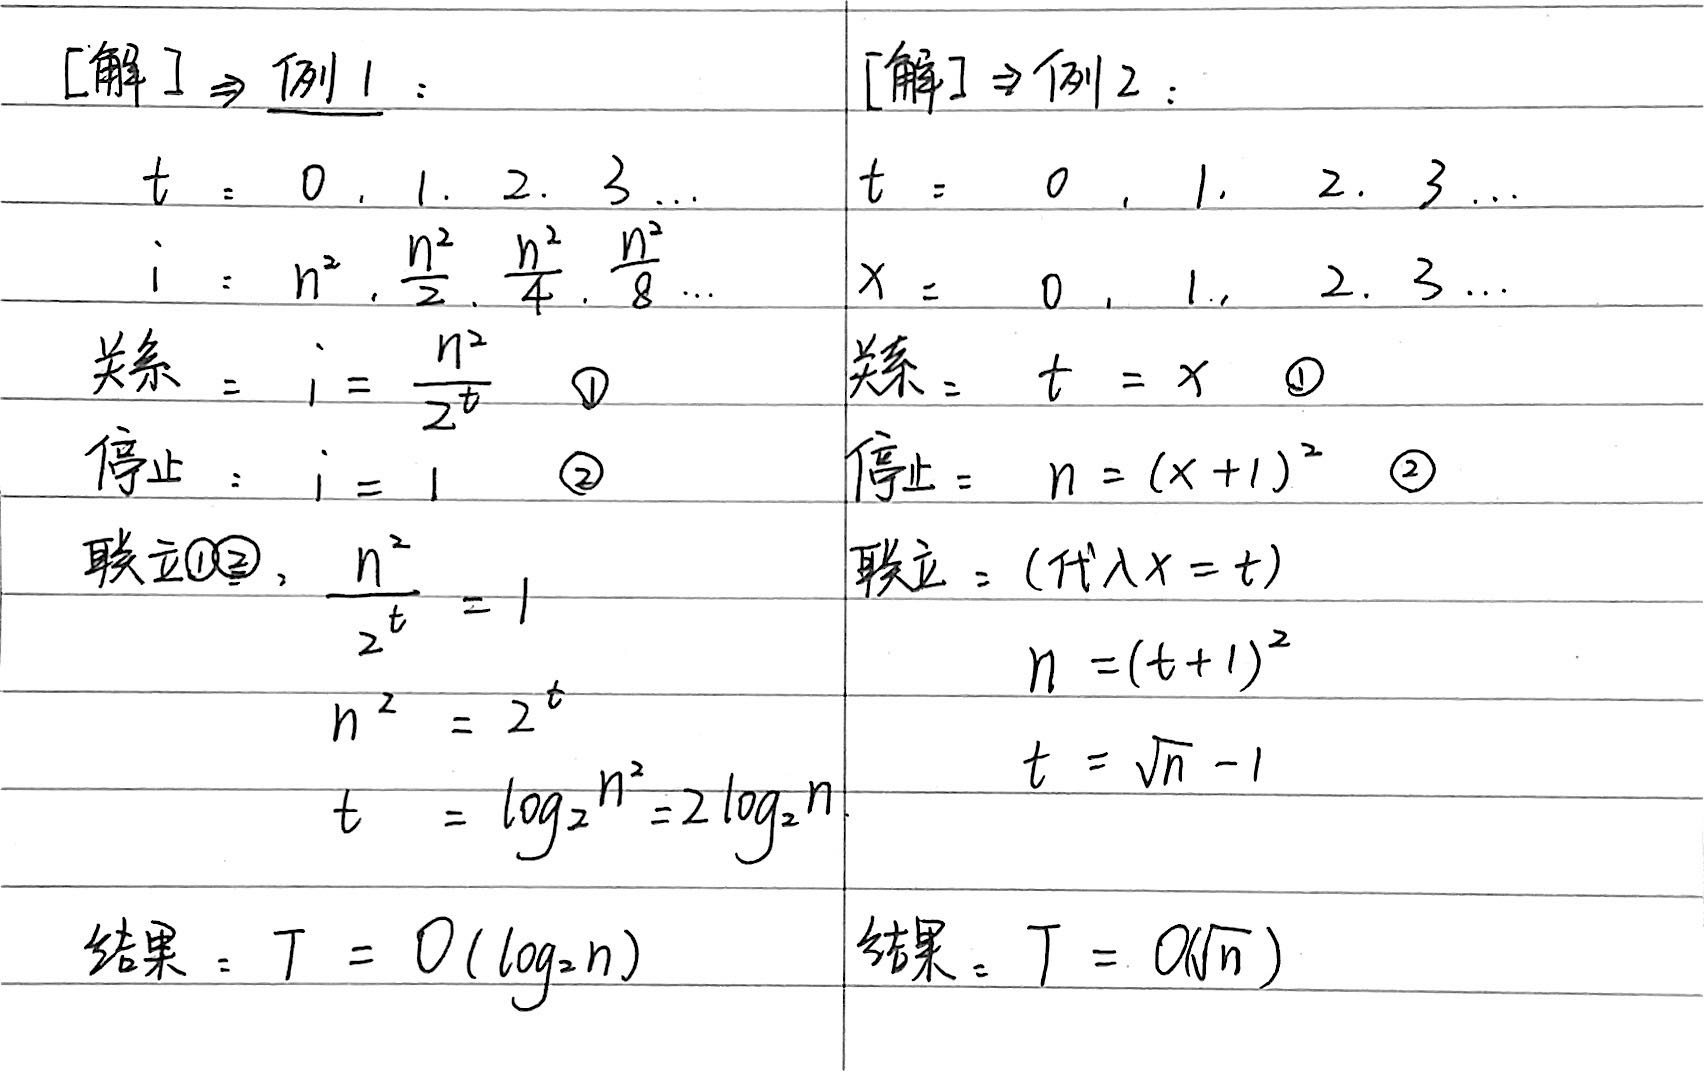 [解] ⇒ 例1：
t : 0 , 1. 2. 3 ...
i : n² , n²/2 , n²/4 , n²/8 ...
关系 = i = n²/2^t ①
停止 : i = 1 ②
联立①②, n²/2^t = 1
n² = 2^t
t = log₂n² = 2log₂n
结果 : T = O(log₂n)
[解] ⇒ 例2：
t = 0 , 1. 2. 3 ...
x = 0 , 1., 2. 3 ...
关系 = t = x ①
停止 = n = (x+1)² ②
联立 = (代入x=t)
n = (t+1)²
t = √n - 1
结果 = T = O(√n)